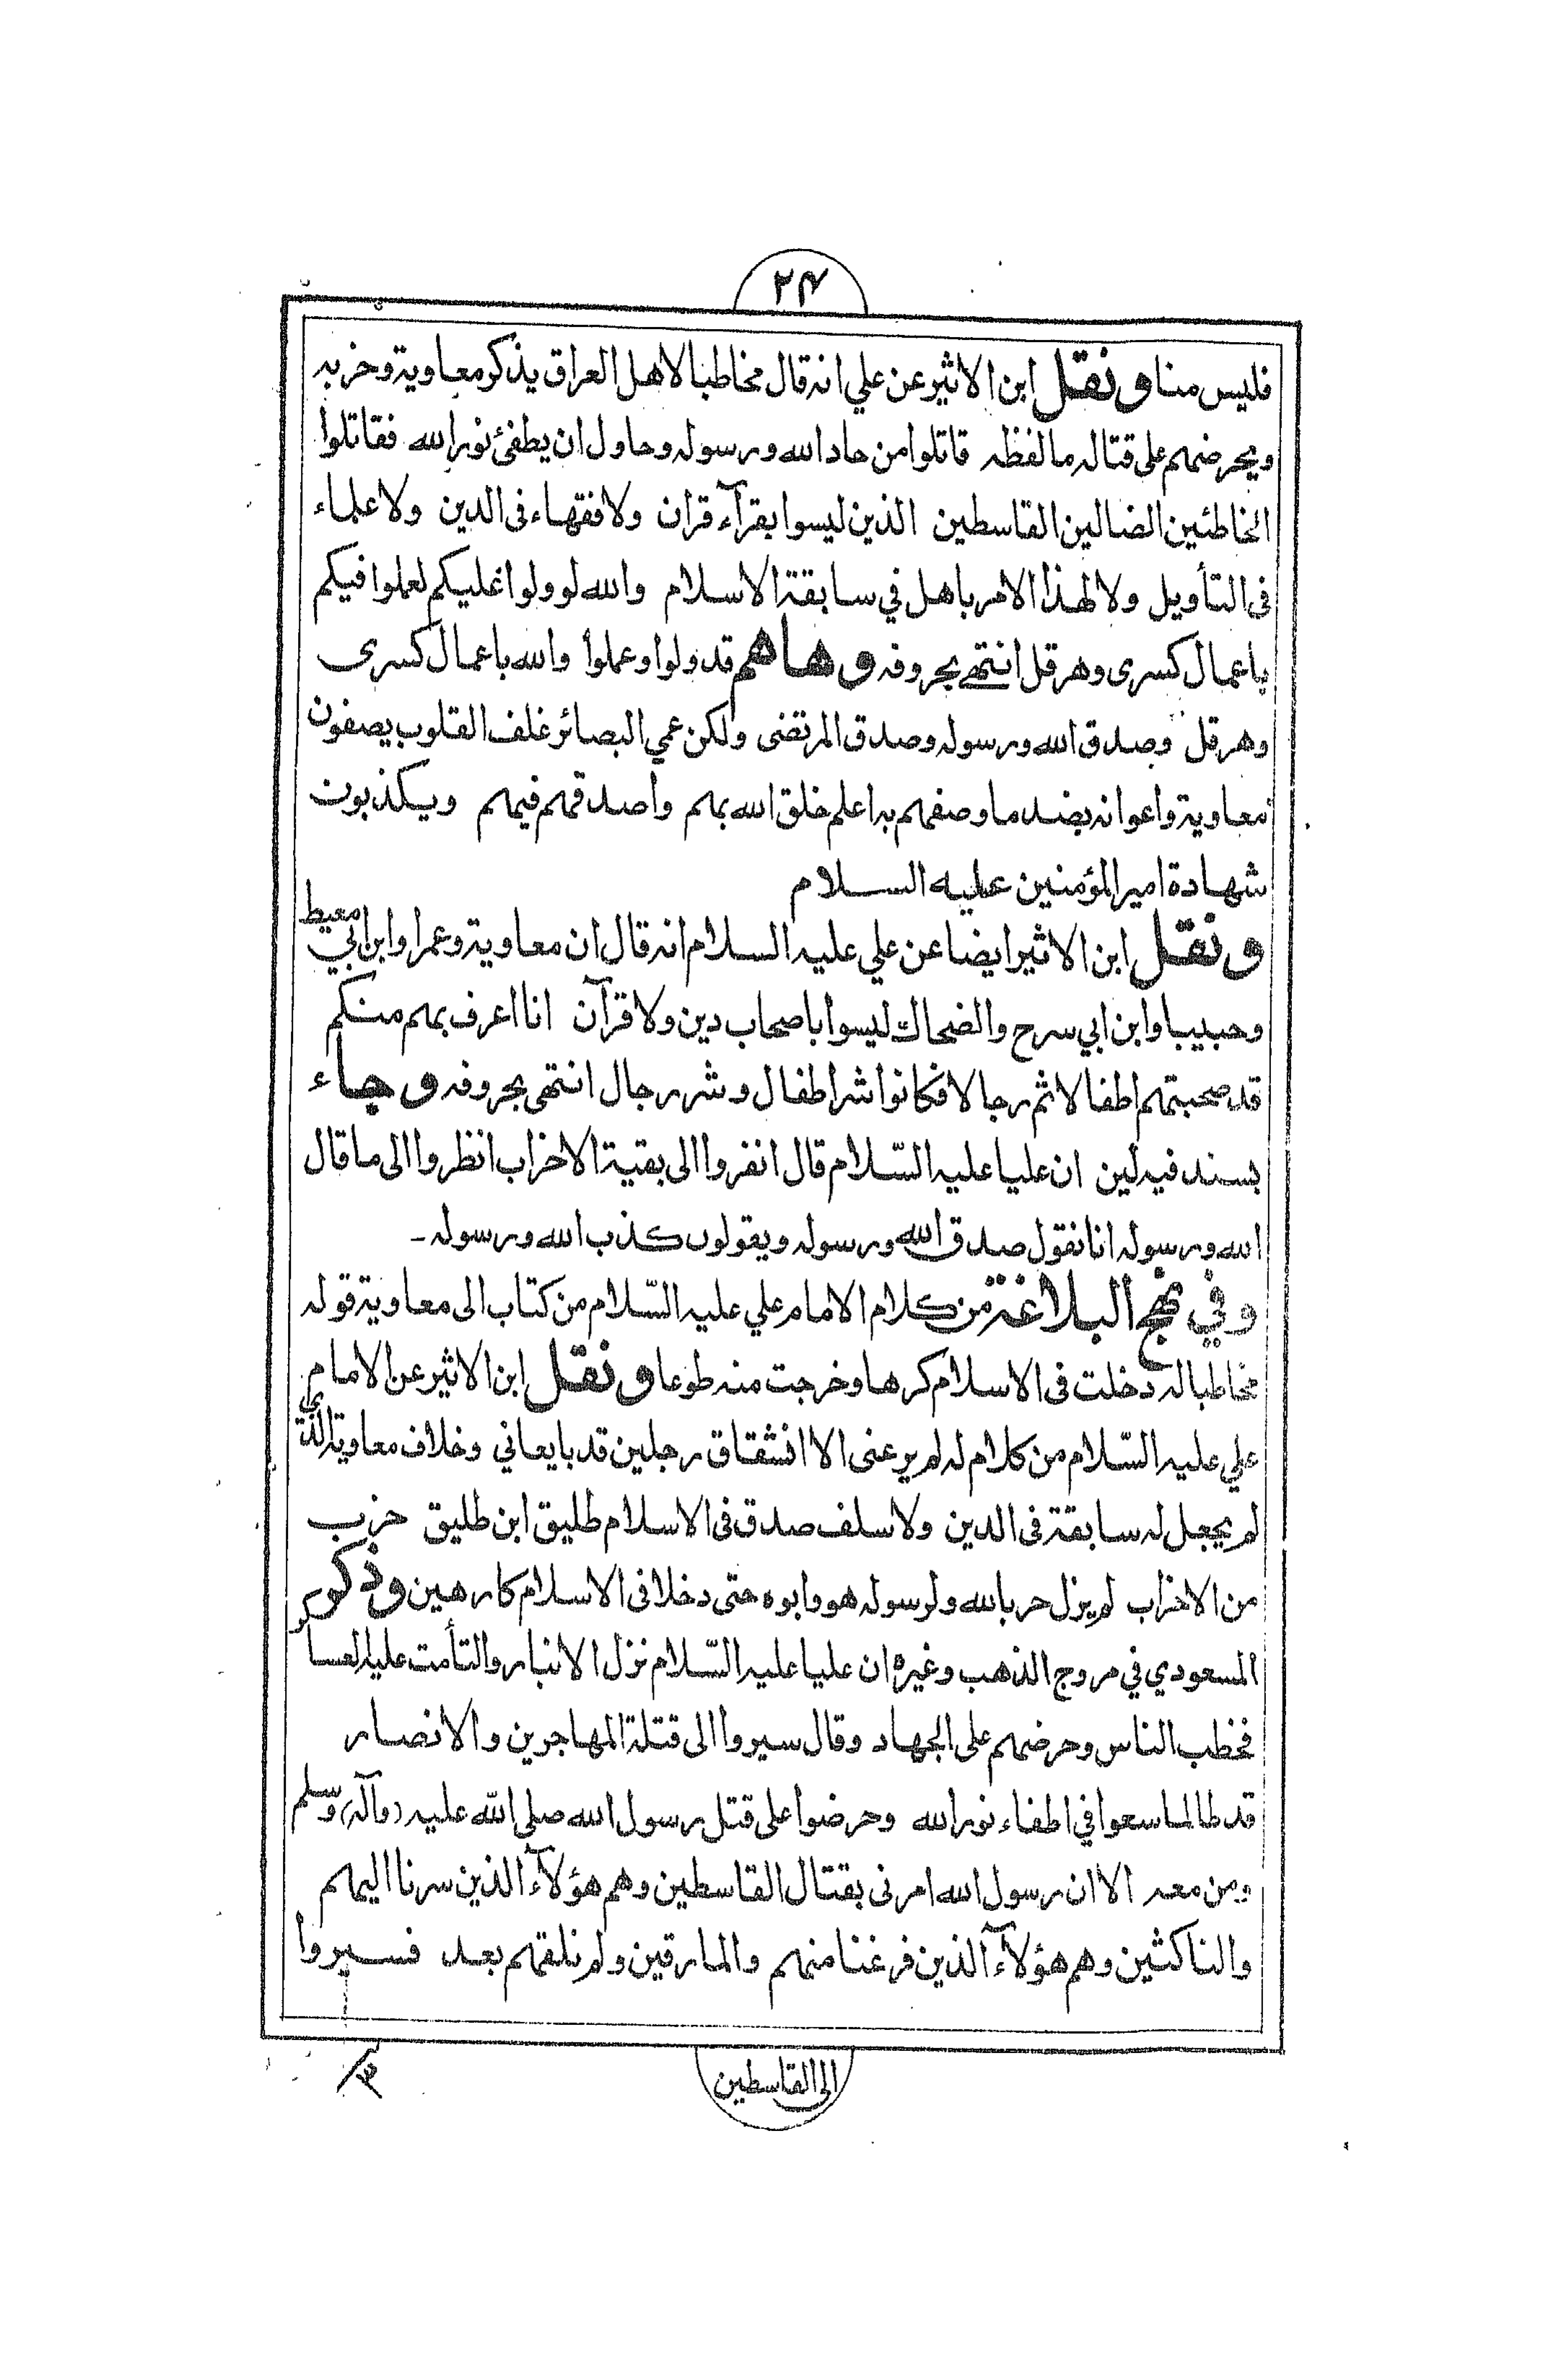 ٢٤
فليس منا ونقل ابن الاثير عن علي انه قال مخاطبا لاهل العراق يذكر معاوية وحزبه
ويحرضهم على قتاله ما لفظه قاتلوا من حاد الله ورسوله وحاول ان يطفئ نور الله فقاتلوا
الخاطئين الضالين القاسطين الذين ليسوا بقرآء قران ولا فقهاء فى الدين ولا علماء
فى التأويل ولا لهذا الامر باهل في سابقة الاسلام والله لو ولوا عليكم لعملوا فيكم
باعمال كسرى وهرقل انتهى بحروفه وهاهم قد ولوا وعملوا والله باعمال كسرى
وهرقل وصدق الله ورسوله وصدق المرتضى ولكن عمي البصائر غلف القلوب يصفون
معاوية واعوانه بضد ما وصفهم به اعلم خلق الله بهم واصدقهم فيهم ويكذبون
شهادة امير المؤمنين عليه السلام
ونقل ابن الاثير ايضا عن علي عليه السلام انه قال ان معاوية وعمرا وابن ابي معيط
وحبيبا وابن ابي سرح والضحاك ليسوا باصحاب دين ولا قرآن انا اعرف بهم منكم
قد صحبتهم اطفالا ثم رجالا فكانوا شر اطفال وشر رجال انتهى بحروفه وجاء
بسند فيه لين ان عليا عليه السّلام قال انفروا الى بقية الاحزاب انظروا الى ما قال
الله ورسوله انا نقول صدق الله ورسوله ويقولون كذب الله ورسوله ـ
وفي نهج البلاغة من كلام الامام علي عليه السّلام من كتاب الى معاوية قوله
مخاطبا له دخلت فى الاسلام كرها وخرجت منه طوعا ونقل ابن الاثير عن الامام
علي عليه السّلام من كلام له لم يرعنى الا انشقاق رجلين قد بايعاني وخلاف معاوية الذي
لم يجعل له سابقة فى الدين ولا سلف صدق فى الاسلام طليق ابن طليق حزب
من الاحزاب لم يزل حربا لله ولرسوله هو وابوه حتى دخلا فى الاسلام كارهين وذكر
المسعودي في مروج الذهب وغيره ان عليا عليه السّلام نزل الانبار والتأمت عليه العساكر
فخطب الناس وحرضهم على الجهاد وقال سيروا الى قتلة المهاجرين والانصار
قد طالما سعوا في اطفاء نور الله وحرضوا على قتل رسول الله صلى الله عليه (وآله) وسلم
ومن معه الا ان رسول الله امرنى بقتال القاسطين وهم هؤلآء الذين سرنا اليهم
والناكثين وهم هؤلآء الذين فرغنا منهم والمارقين ولم نلقهم بعد فسيروا
الى القاسطين